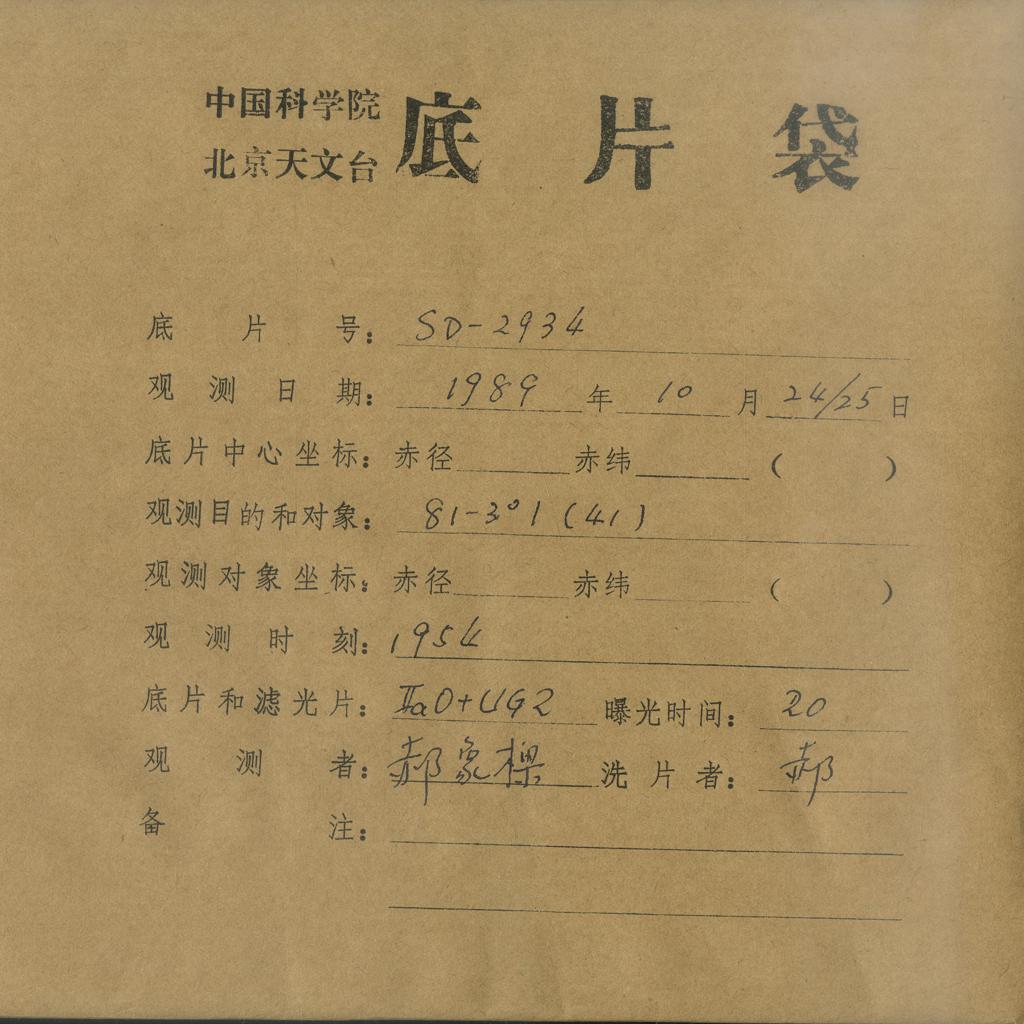 中国科学院
北京天文台
底片袋
底片号：SD-2934
观测日期：1989年10月24/25日
底片中心坐标：赤径 赤纬 （ ）
观测目的和对象：81-3°1 (41)
观测对象坐标：赤径 赤纬 （ ）
观测时刻：1954
底片和滤光片：IIaO+UG2 曝光时间：20
观测者：郝象樑 洗片者：郝
备注：